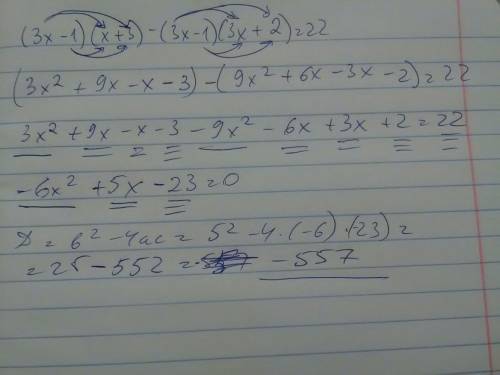 (3x-1)(x+3)-(3x-1)(3x+2)=22
(3x²+9x-x-3)-(9x²+6x-3x-2)=22
3x²+9x-x-3-9x²-6x+3x+2=22
-6x²+5x-23=0
D=b²-4ac=5²-4·(-6)·(-23)=
=25-552= -557